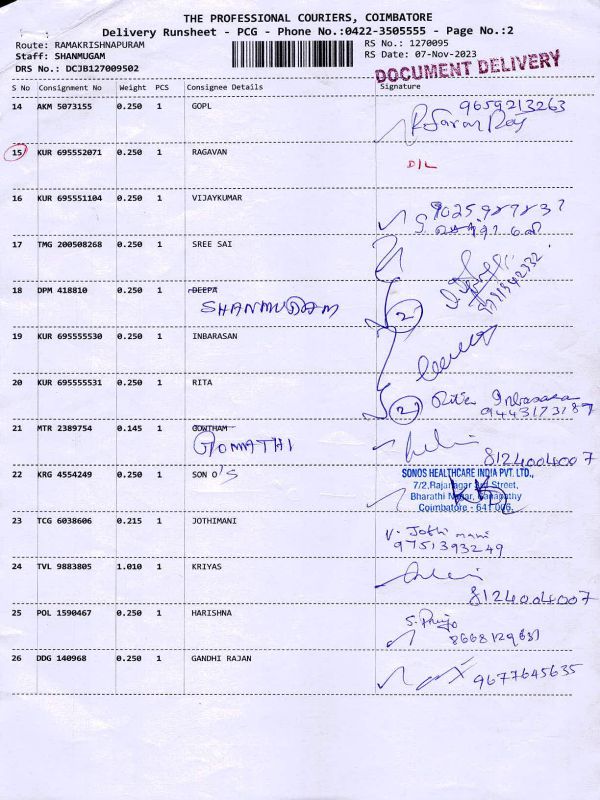 THE PROFESSIONAL COURIERS, COIMBATORE
Delivery Runsheet - PCG - Phone No.:0422-3505555 - Page No.:2
Route: RAMAKRISHNAPURAM
Staff: SHANMUGAM
DRS No.: DCJB127009502
RS No.: 1270095
RS Date: 07-Nov-2023
DOCUMENT DELIVERY
S No Consignment No Weight PCS Consignee Details Signature
14 AKM 5073155 0.250 1 GOPL 9659213263
15 KUR 695552071 0.250 1 RAGAVAN D/L
16 KUR 695551104 0.250 1 VIJAYKUMAR
17 TMG 200508268 0.250 1 SREE SAI
18 DPM 418810 0.250 1 DEEPA
SHANMUGAM 2
19 KUR 695555530 0.250 1 INBARASAN
20 KUR 695555531 0.250 1 RITA 2 Rita Inbasaran
9443173187
21 MTR 2389754 0.145 1 GOWTHAM
GOMATHI 8124004007
22 KRG 4554249 0.250 1 SON O/S
SONOS HEALTHCARE INDIA PVT. LTD.,
7/2,Rajanagar 3rd Street,
Bharathi Nagar, Ganapathy
Coimbatore - 641 006.
23 TCG 6038606 0.215 1 JOTHIMANI V. Jothi mani
9751393249
24 TVL 9883805 1.010 1 KRIYAS
8124004007
25 POL 1590467 0.250 1 HARISHNA
8668129631
26 DDG 140968 0.250 1 GANDHI RAJAN 9677645635